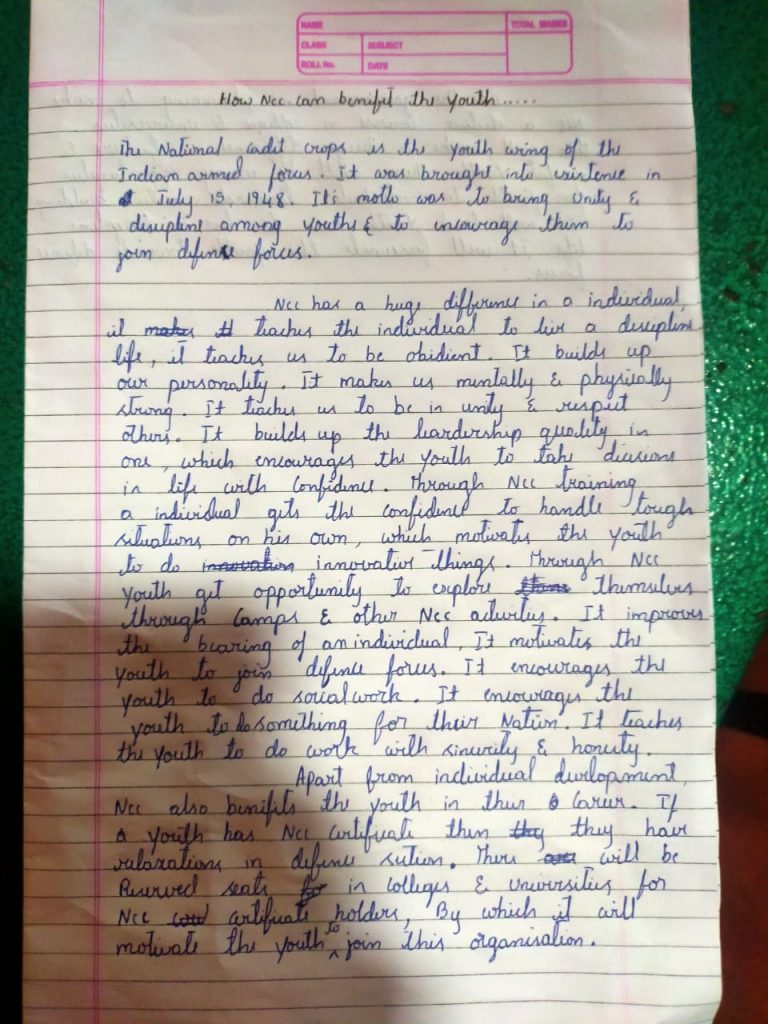 NAME
TOTAL MARKS
CLASS
SUBJECT
ROLL No.
DATE
How Ncc can benifit the youth.....
The National cadit crops is the youth wing of the
Indian armed forces. It was brought into existence in
July 15, 1948. It's motto was to bring unity &
discipline among youths & to encourage them to
join defence forces.
Ncc has a huge difference in a individual,
it makes it teaches the individual to live a discipline
life, it teaches us to be obidient. It builds up
our personality. It makes us mentally & physically
strong. It teaches us to be in unity & respect
others. It builds up the leardership quality in
one, which encourages the youth to take decisions
in life with confidence. Through Ncc training
a individual gets the confidence to handle tough
situations on his own, which motivates the youth
to do innovation innovative things. Through Ncc
youth get opportunity to explore themselves
through camps & other Ncc activites. It improves
the bearing of an individual, It motivates the
youth to join defence forces. It encourages the
youth to do social work. It encourages the
youth to do something for their Nation. It teaches
the youth to do work with sincerity & honesty.
Apart from individual development,
Ncc also benifits the youth in their career. If
a youth has Ncc certificate then they they have
relaxations in defence section. There are will be
Reserved seats for in colleges & universities for
Ncc certificate holders, By which it will
motivate the youth to join this organisation.